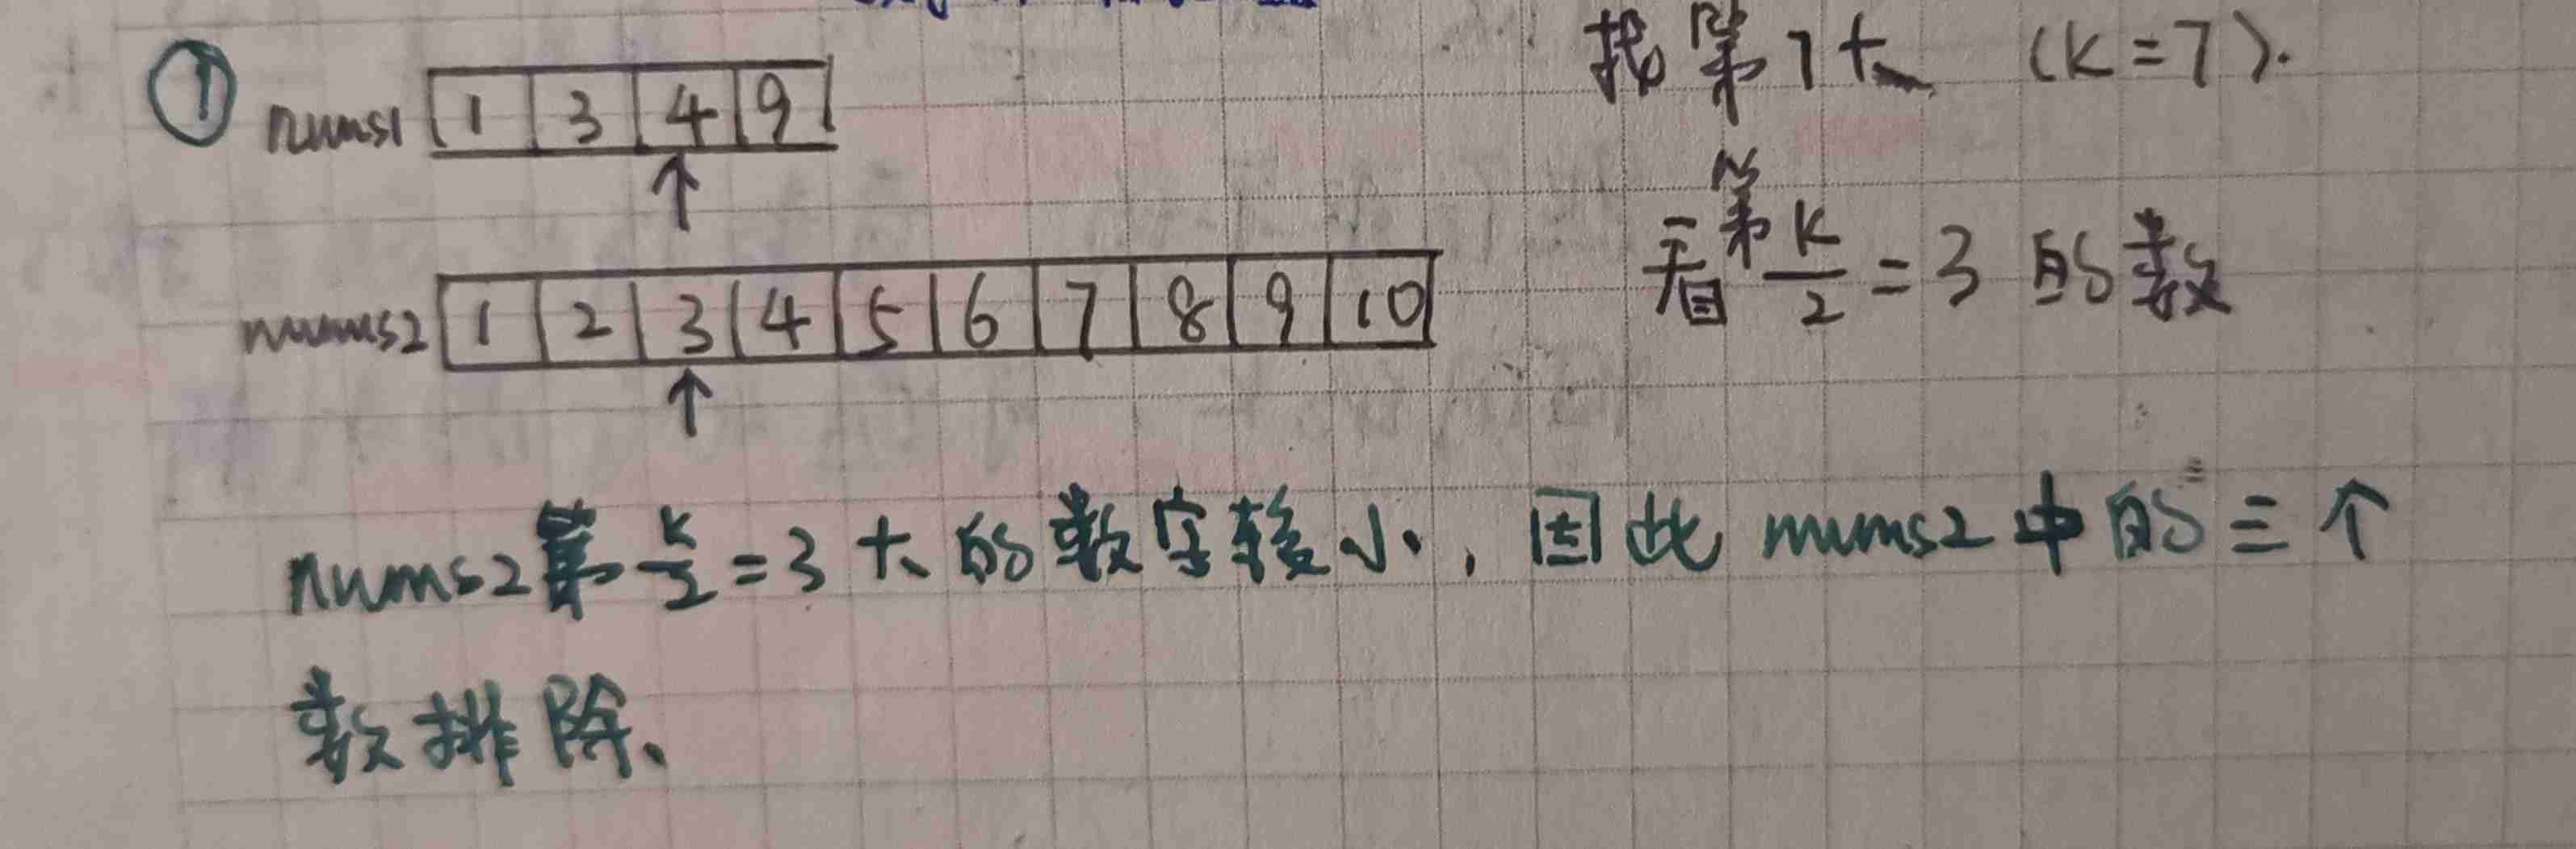 ① nums1 1 3 4 9 找第7大 (K=7).
↑
看第K/2=3的数
nums2 1 2 3 4 5 6 7 8 9 10
↑
nums2第K/2=3大的数字较小, 因此nums2中的三个
数排除、